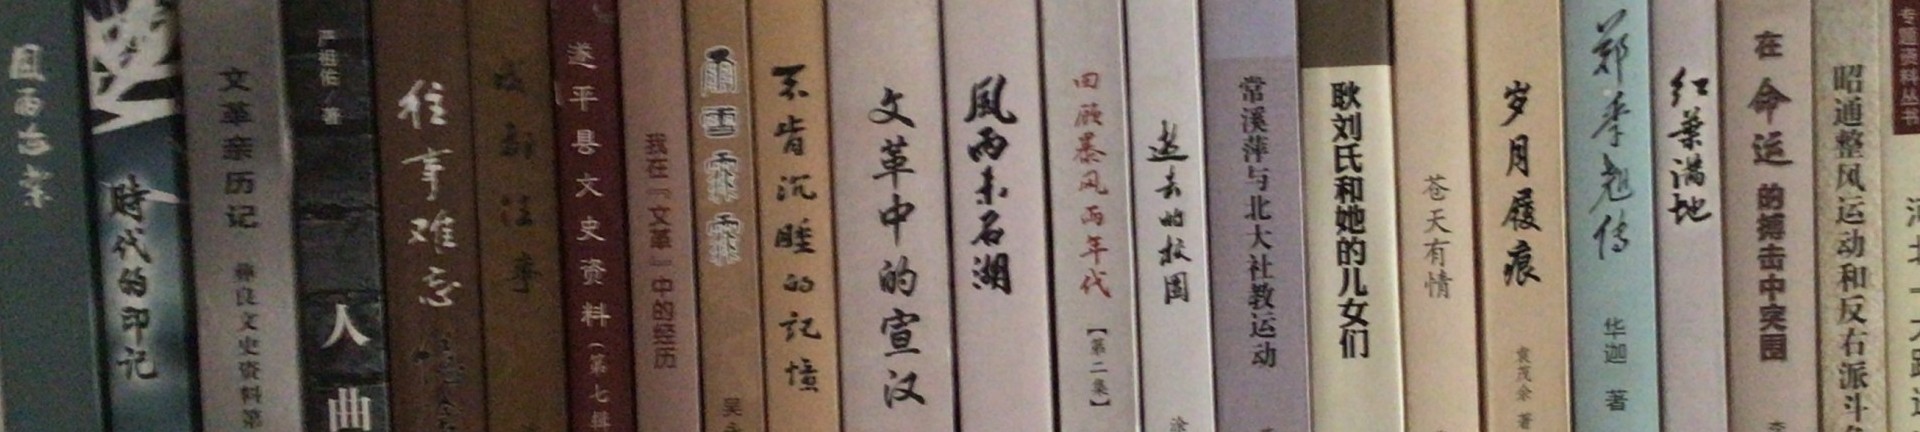 風雨忘
時代的印记
文革亲历记
彝良文史资料第
严祖佑 著
人
曲
往事难忘
往事
遂平县文史资料（第七辑
我在『文革』中的经历
雨雪霏霏
吴
不肯沉睡的記憶
文革中的宣汉
風雨未名湖
回顾暴风雨年代
【第二集】
逝去的校园
涂
常溪萍与北大社教运动
耿刘氏和她的儿女们
苍天有情
岁月履痕
袁茂余 著
郑季翘传
华迦 著
红葉满地
在命运的搏击中突围
李
昭通整风运动和反右派斗
专题资料丛书